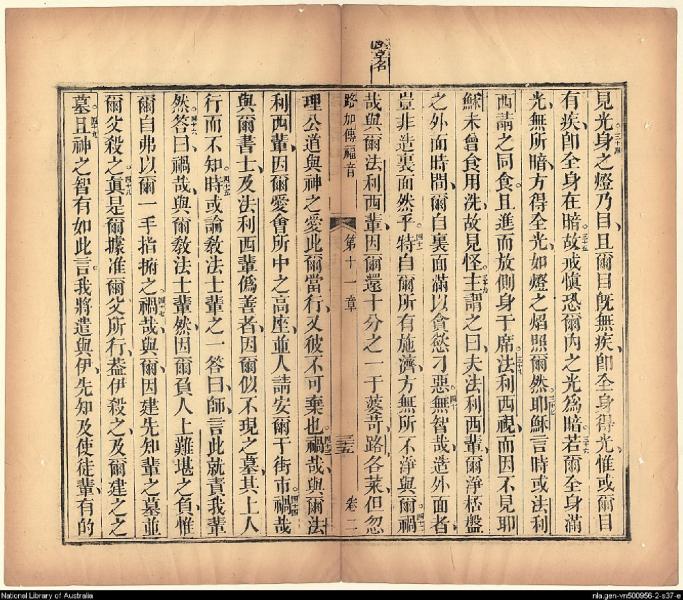 見光身之燈乃目且爾目既無疾即全身得光惟或爾目
三十四
有疾即全身在暗故戒慎恐爾內之光為暗若爾全身滿
三十五
三十六
光無所暗方得全光如燈之焰照爾然耶穌言時或法利
三十七
西請之同食且進而放側身于席法利西視而因不見耶
三十八
穌未曾食用洗故見怪主謂之曰夫法利西輩爾淨桮盤
三十九
之外面時間爾自裏面滿以貪慾刁惡無智哉造外面者
四十
豈非造裏面然乎特自爾所有施濟方無所不淨與爾禍
四一
四二
哉與爾法利西輩因爾還十分之一于薄哥路各菜但忽
路加傳福音
第十一章
三五
卷二
理公道與神之愛此爾當行又彼不可棄也禍哉與爾法
四三
利西輩因爾愛會所中之高座並人請安爾于街市禍哉
四十四
與爾書士及法利西輩偽善者因爾似不現之墓其上人
行而不知時或論教法士輩之一答曰師言此就責我輩
四十五
然答曰禍哉與爾教法士輩然因爾負人上難堪之負惟
四十六
爾自弗以爾一手指撫之禍哉與爾因建先知輩之墓並
四十七
爾父殺之真是爾據准爾父所行蓋伊殺之及爾建之之
四十八
墓且神之智有如此言我將遣與伊先知及使徒輩有的
四十九
National Library of Australia
nla.gen-vn500956-2-s37-e